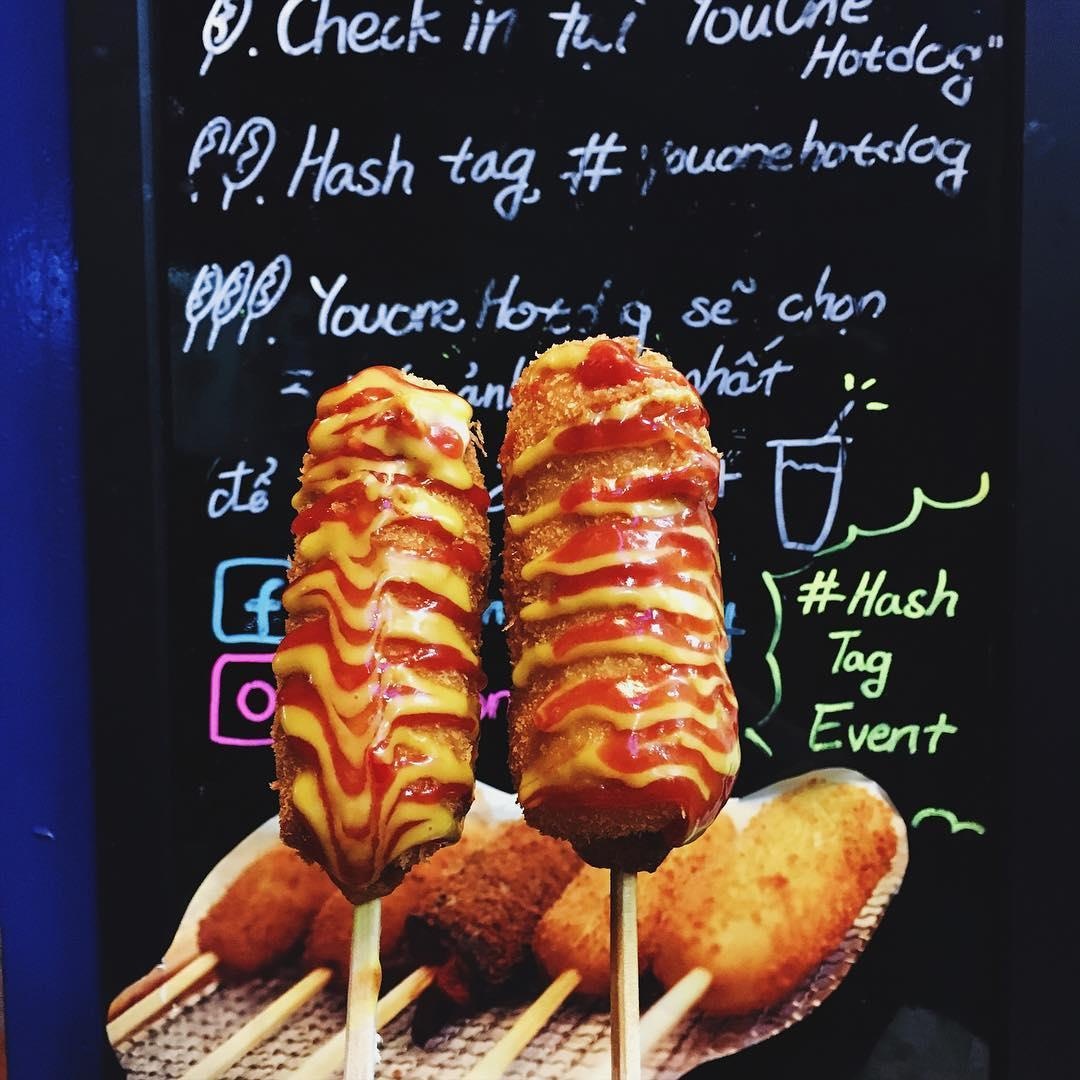 . Check in tại YouOne
Hotdog"
. Hash tag, # youonehotdog
. Youone Hotdog sẽ chọn
= ảnh nhất
để
#Hash
Tag
Event